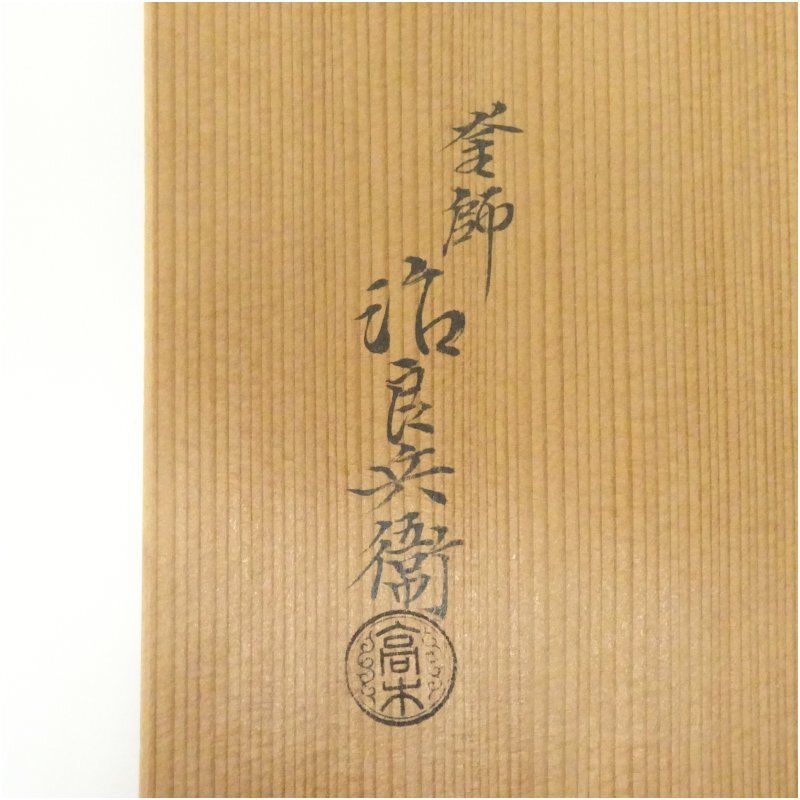 釜師
治良兵衛
高木